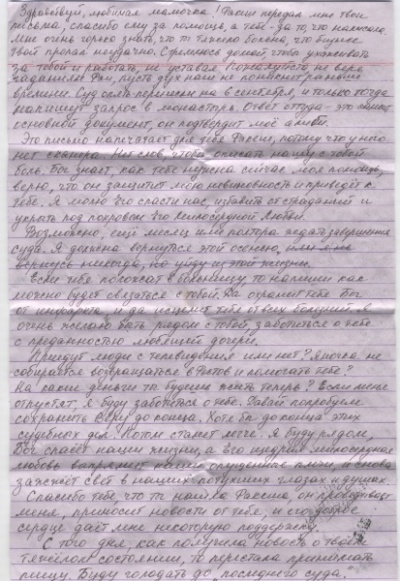 Здравствуй, любимая мамочка! Расим передал мне твои
письма, спасибо ему за помощь, а тебе - за то, что написала.
Мне очень горько знать, что ты тяжело больна, что бизнес
твой пропал неудачно. Стремлюсь домой, чтобы ухаживать
за тобой и работать, не уставая. Пожалуйста не верь
гаданиям! пусть дух наш не поникнет раньше
времени. Суд перенесли на 8 сентября, и только тогда
напишут запрос в монастырь. Ответ оттуда - это самый
основной документ, он подтвердит моё алиби.
Это письмо напечатает для тебя Расим, потому что у него
нет сканера. Нет слов, чтобы описать нашу с тобой
боль. Бог знает, как тебе нужна сейчас моя помощь,
верю, что он защитит мою невиновность и приведёт к
тебе. Я молю Его спасти нас, избавить от страданий и
укрыть под покровом Его милосердной любви.
Возможно, ещё месяц или полтора ждать завершения
суда. Я должна вернуться этой осенью, или не
вернусь никогда, но уйду из этой жизни.
Если тебя положат в больницу, то напиши как
можно будет связаться с тобой. Да охранит тебя Бог
от инфаркта, и да исцелит тебя от всех болезней. Я
очень желаю быть рядом с тобой, заботиться о тебе
с преданностью любящей дочери.
Придут люди с телевидения или нет? Яночка не
собирается возвращаться в Ростов и помогать тебе?
На какие деньги ты будешь жить теперь? Если меня
отпустят, я буду заботиться о тебе. Давай попробуем
сохранить Веру до конца. Хотя бы до конца этих
судебных дел. Потом станет легче. Я буду рядом,
Бог спасёт наши жизни, а Его щедрая милосердная
любовь выпрямит наши опущенные плечи, и снова
зажжёт свет в наших потухших глазах и душах.
Спасибо тебе, что ты нашла Расима, он провёдывает
меня, приносит новости от тебе, и его доброе
сердце даёт мне некоторую поддержку.
С того дня, как получила новость о твоём
тяжёлом состоянии, то перестала принимать
пищу. Буду голодать до "последнего суда."